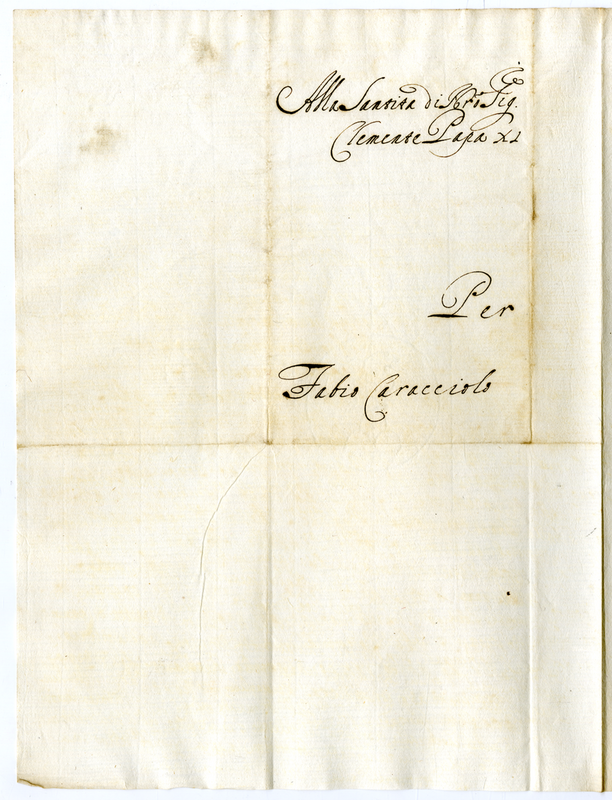 Alla Santità di Nrõ Sig.re
Clemente Papa XI
Per
Fabio Caracciolo